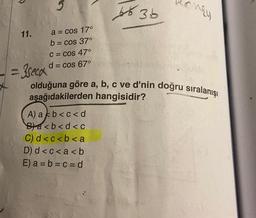 3b
11.
a = cos 17°
b = cos 37°
c = cos 47°
d = cos 67°
olduğuna göre a, b, c ve d'nin doğru sıralanışı
aşağıdakilerden hangisidir?
A) a < b < c < d
B) a < b < d < c
C) d < c < b < a
D) d < c < a < b
E) a = b = c = d